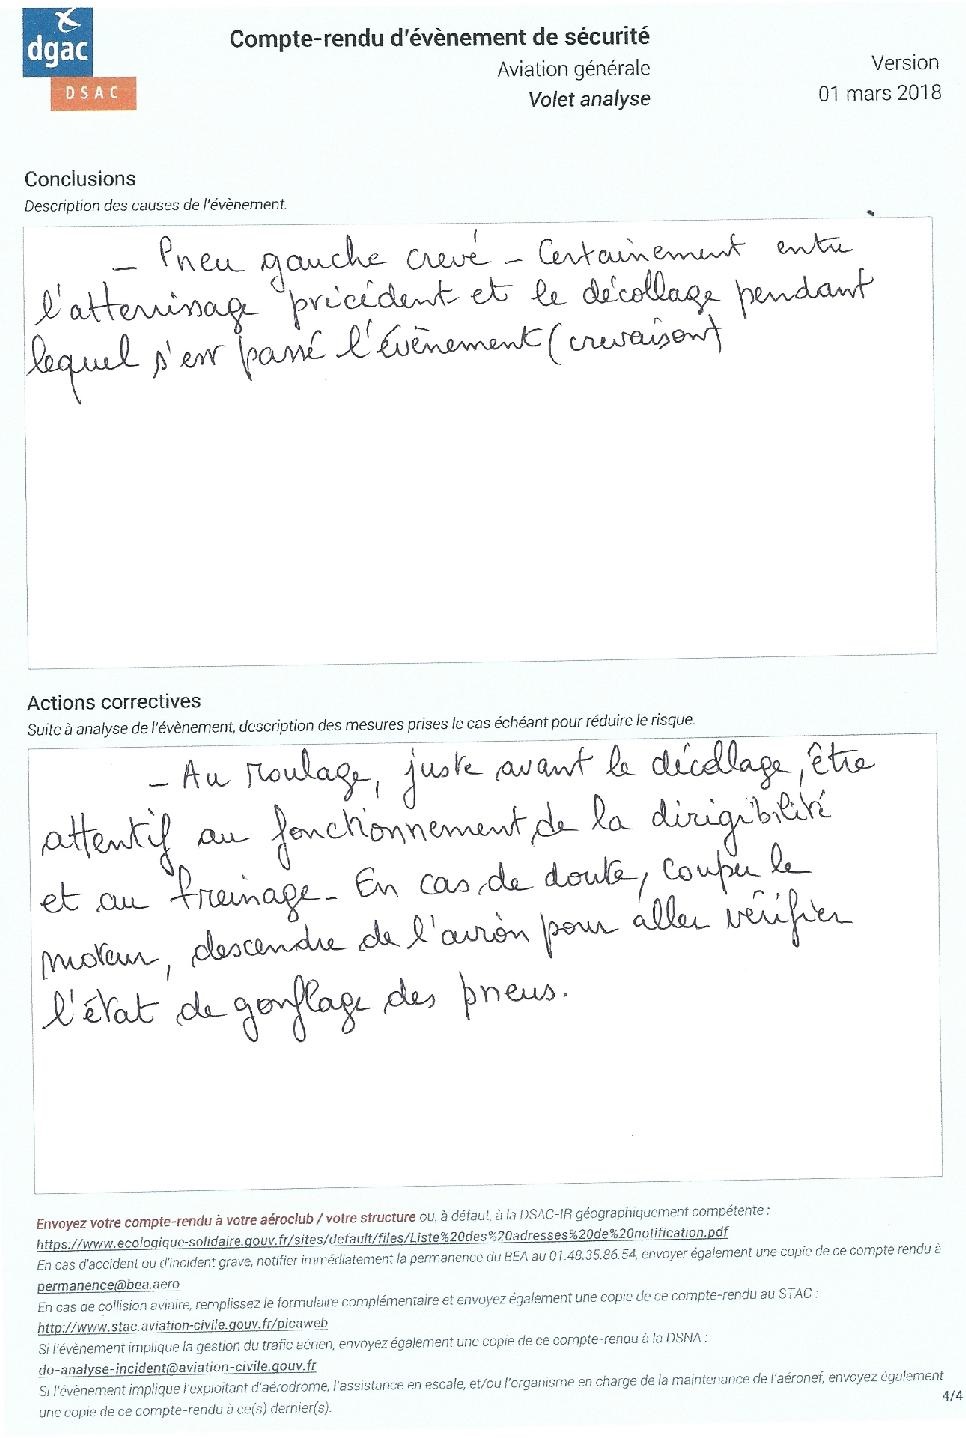 dgac
DSAC
Compte-rendu d'évènement de sécurité
Aviation générale
Volet analyse
Version
01 mars 2018
Conclusions
Description des causes de l'évènement.
– Pneu gauche crevé – Certainement entre
l'atterrissage précédent et le décollage pendant
lequel s'est passé l'évènement (crevaison)
Actions correctives
Suite à analyse de l'évènement, description des mesures prises le cas échéant pour réduire le risque.
– Au roulage, juste avant le décollage, être
attentif au fonctionnement de la dirigibilité
et au freinage – En cas de doute, couper le
moteur, descendre de l'avion pour aller vérifier
l'état de gonflage des pneus.
Envoyez votre compte-rendu à votre aéroclub / votre structure ou, à défaut, à la DSAC-IR géographiquement compétente :
https://www.ecologique-solidaire.gouv.fr/sites/default/files/Liste%20des%20adresses%20de%20notification.pdf
En cas d'accident ou d'incident grave, notifier immédiatement la permanence du BEA au 01.48.35.86.54, envoyer également une copie de ce compte rendu à
permanence@bea.aero
En cas de collision aviaire, remplissez le formulaire complémentaire et envoyez également une copie de ce compte-rendu au STAC :
http://www.stac.aviation-civile.gouv.fr/picaweb
Si l'évènement implique la gestion du trafic aérien, envoyez également une copie de ce compte-rendu à la DSNA :
do-analyse-incident@aviation-civile.gouv.fr
Si l'évènement implique l'exploitant d'aérodrome, l'assistance en escale, et/ou l'organisme en charge de la maintenance de l'aéronef, envoyez également
une copie de ce compte-rendu à ce(s) dernier(s).
4/4